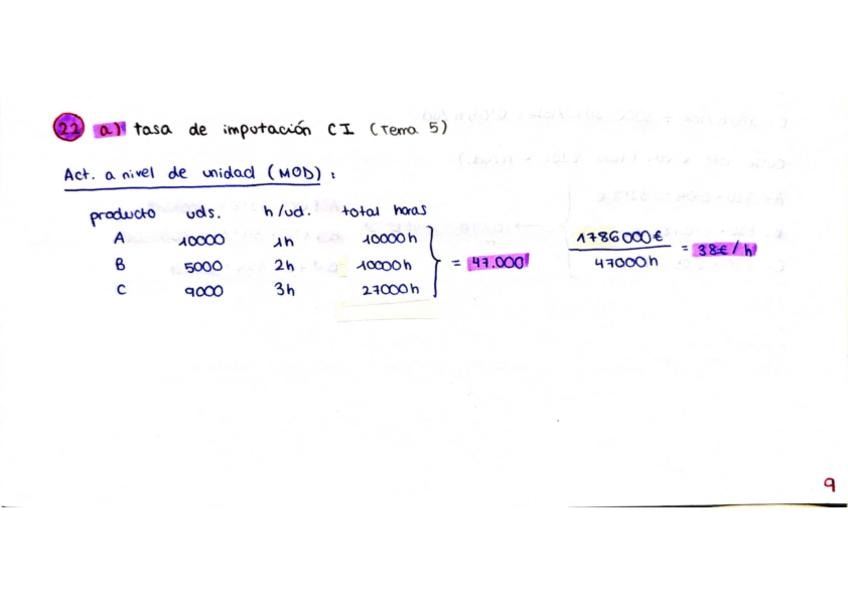 22 a) tasa de imputación CI (Tema 5)
Act. a nivel de unidad (MOD) :
producto uds. h/ud. total horas
A 10000 1h 10000h
B 5000 2h 10000h
C 9000 3h 27000h
= 47.000
1786000€
47000h
= 38€/h
9